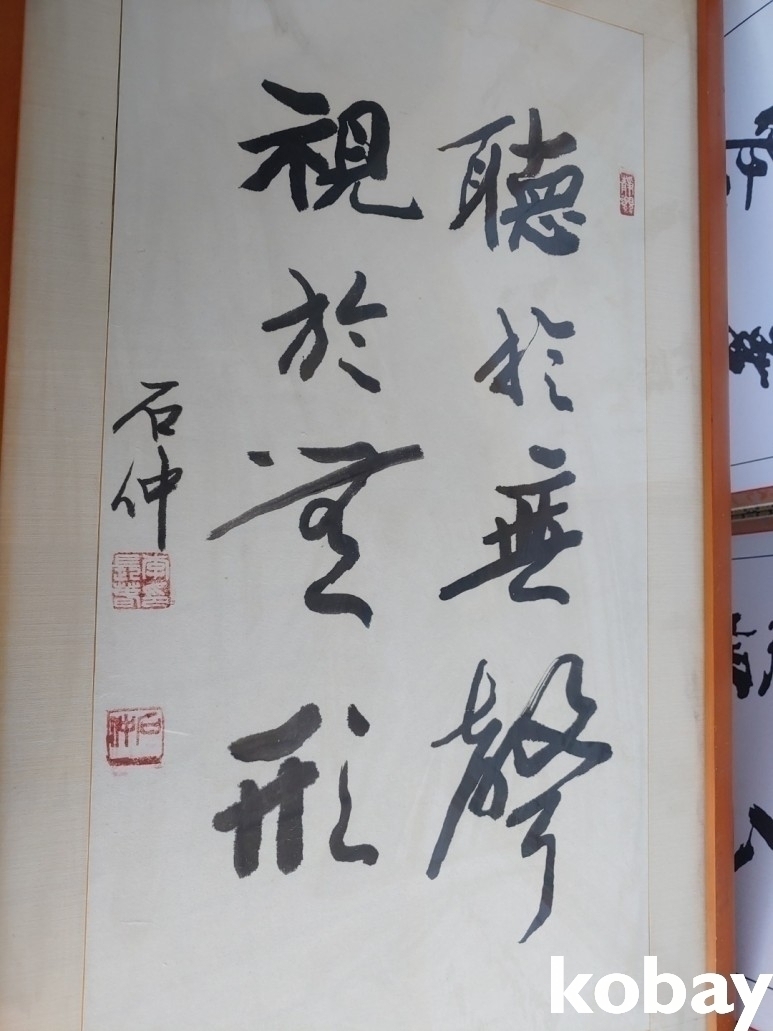 聽於無聲
視於無形
石仲
石仲
kobay